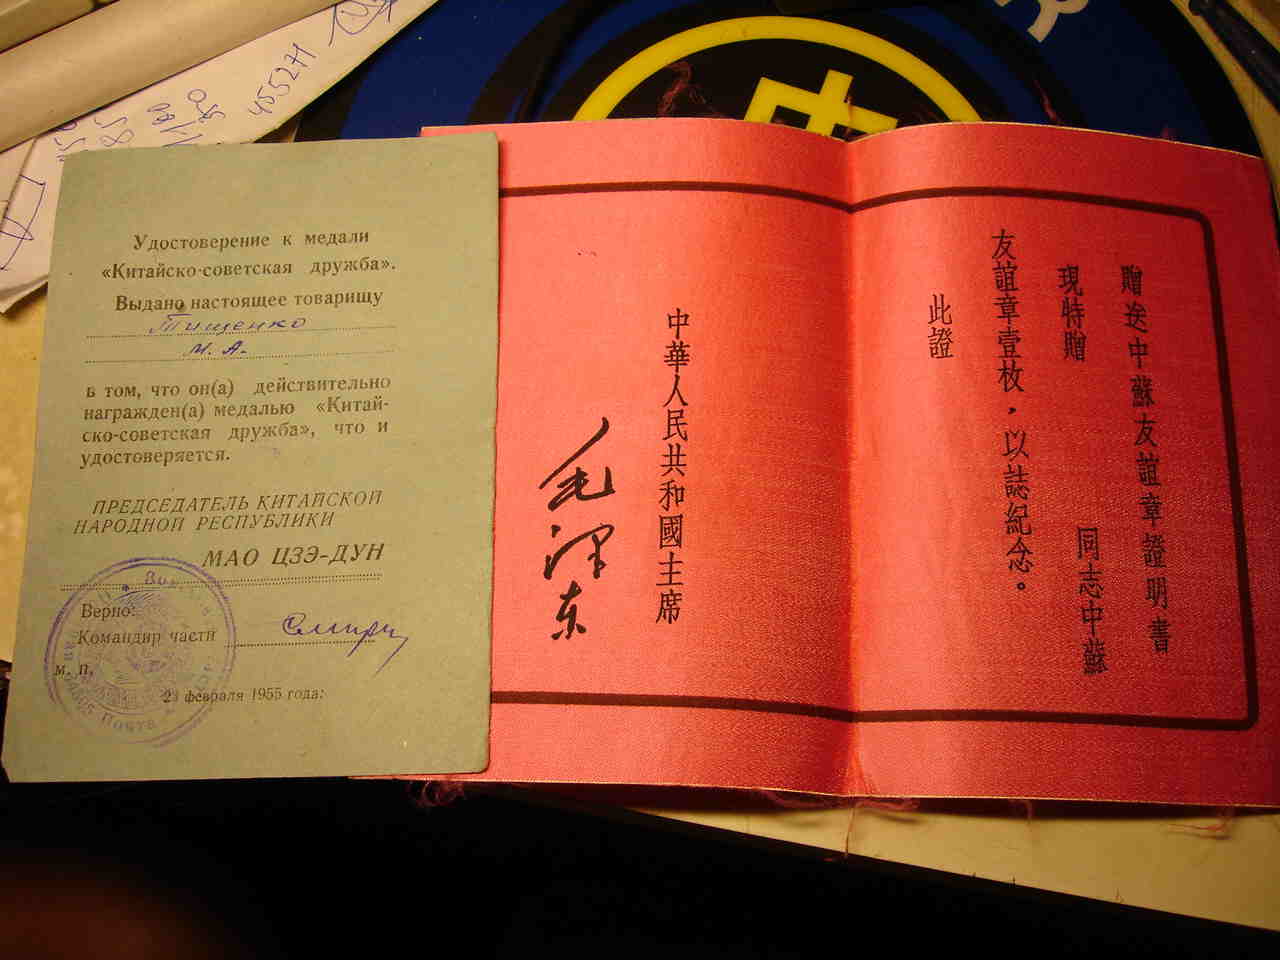 455271
Удостоверение к медали
«Китайско-советская дружба».
Выдано настоящее товарищу
Тищенко
М. А.
в том, что он(а) действительно
награжден(а) медалью «Китай-
ско-советская дружба», что и
удостоверяется.
ПРЕДСЕДАТЕЛЬ КИТАЙСКОЙ
НАРОДНОЙ РЕСПУБЛИКИ
МАО ЦЗЭ-ДУН
Верно:
Командир части
м. п.
23 февраля 1955 года:
贈送中蘇友誼章證明書
現特贈
同志中蘇
友誼章壹枚，以誌紀念。
此證
中華人民共和國主席
毛澤东